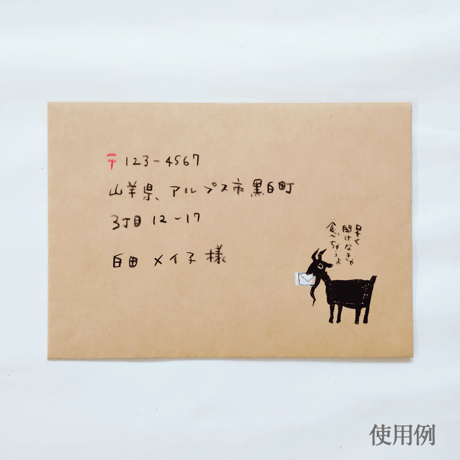 〒123-4567
山羊県、アルプス市黒白町
3丁目12-17
白田 メイ子 様
早く
開けなきゃ
食べちゃうよ
使用例